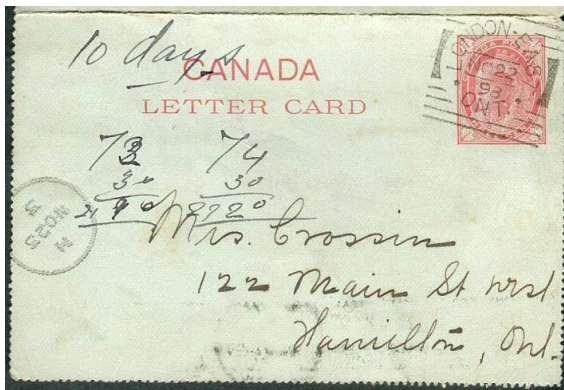 10 days
CANADA
LETTER CARD
LONDON-EAS
22
98
ONT.
73 74
30 30
2190 2220
Mrs. Crossin
122 Main St West
Hamilton, Ont.